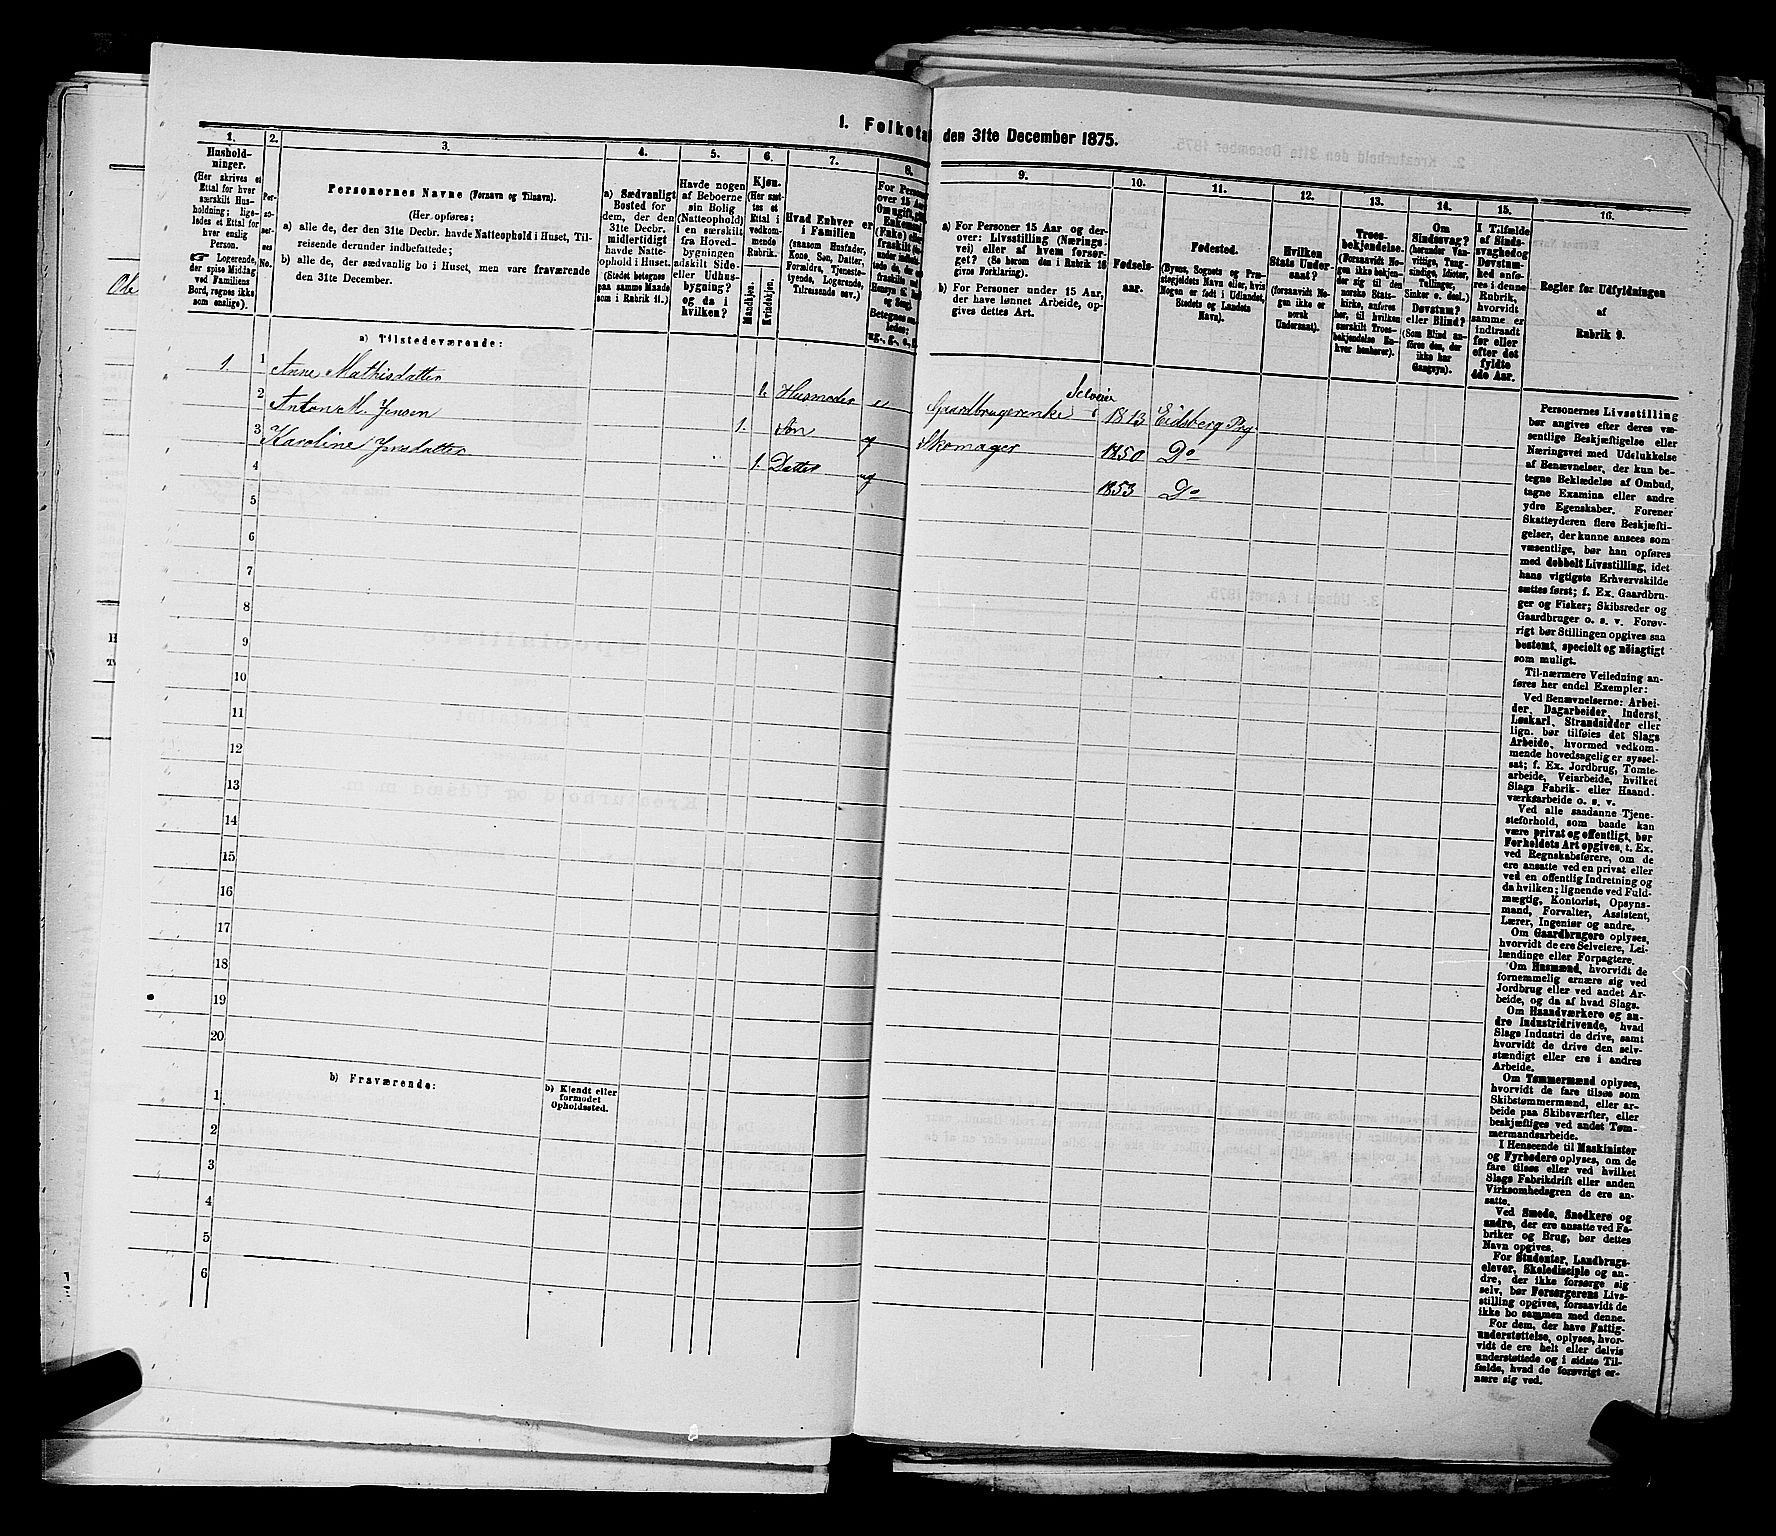 I. Folketa
den 31te December 1875.
1.
Hushold-
ninger.
(Her skrives et
Ettal for hver
særskilt Hus-
holdning; lige-
ledes et Ettal for
hver enslig
Person.
☞ Logerende,
der spise Middag
ved Familiens
Bord, regnes ikke
som enslige).
2.
Per-
so-
ner-
nes
No.
3.
Personernes Navne (Fornavn og Tilnavn).
(Her opføres:
a) alle de, der den 31te Decbr. havde Natteophold i Huset, Til-
reisende derunder indbefattede;
b) alle de, der sædvanlig bo i Huset, men vare fraværende
den 31te December.
4.
a) Sædvanligt
Bosted for
dem, der den
31te Decbr.
midlertidigt
havde Natte-
ophold i Huset.
(Stedet betegnes
paa samme Maade
som i Rubrik 11.)
5.
Havde nogen
af Beboerne
sin Bolig
(Natteophold)
i en særskilt
fra Hoved-
bygningen
adskilt Side-
eller Udhus-
bygning?
og da i
hvilken?
6.
Kjøn.
(Her sæt-
tes et
Ettal i
vedkom-
mende
Rubrik.
Mandkjøn.
Kvindekjøn.
7.
Hvad Enhver er
i Familien
(saasom Husfader,
Kone, Søn, Datter,
Forældre, Tjeneste-
tyende, Logerende,
Tilreisende osv.)
8.
For Persone
over 15 Aar
Om ugift, gift,
Enkemand
(Fake) eller
fraskilt
9.
a) For Personer 15 Aar og der-
over: Livsstilling (Nærings-
vei) eller af hvem forsør-
get? (Se herom den i Rubrik 16
givne Forklaring).
b) For Personer under 15 Aar,
der have lønnet Arbeide, op-
gives dettes Art.
10.
Fødsels-
aar.
11.
Fødested.
(Byens, Sognets og Præ-
stegjeldets Navn eller, hvis
Nogen er født i Udlandet,
Stedets og Landets
Navn).
12.
Hvilken
Stats Under-
saat?
(forsaavidt No-
gen ikke er
norsk
Undersaat).
13.
Troes-
bekjendelse.
(Forsaavidt No-
gen ikke bekjen-
der sig til den
norske Stats-
kirke, anføres
her, til hvilken
særskilt Troes-
bekjendelse En-
hver henhører).
14.
Om
Sindssvag?
(herunder Van-
vittige, Tung-
sindige, Idioter,
Tullinger,
Sinker o. desl.)
Døvstum?
eller Blind?
(Som Blind an-
føres den, der
ikke har
Gangsyn).
15.
I Tilfælde
af Sinds-
svaghed og
Døvstum-
hed anfø-
res i denne
Rubrik,
hvorvidt
samme er
indtraadt
før eller
efter det
fyldte
4de Aar.
16.
Regler for Udfyldningen
af
Rubrik 9.
a) Tilstedeværende:
1 1 Anne Mathisdatter 1. Husmoder e Gaardbrugerenke Selveier 1813 Eidsberg Prg.
2 Anton M. Jensen 1. Søn ug Skomager 1850 Do
3 Karoline Jensdatter 1. Datter ug 1853 Do
4
5
6
7
8
9
10
11
12
13
14
15
16
17
18
19
20
b) Fraværende:
b) Kjendt eller
formodet
Opholdssted.
1
2
3
4
5
6
Personernes Livsstilling
bør angives efter deres væ-
sentlige Beskjæftigelse eller
Næringsvei med Udelukkelse
af Benævnelser, der kun be-
tegne Beklædelse af Ombud,
tagne Examina eller andre
ydre Egenskaber. Forener
Skatteyderen flere Beskjæfti-
gelser, der kunne ansees som
væsentlige, bør han opføres
med dobbelt Livsstilling, idet
hans vigtigste Erhvervskilde
sættes først; f. Ex. Gaardbru-
ger og Fisker; Skibsreder og
Gaardbruger o. s. v. Forøv-
rigt bør Stillingen opgives saa
bestemt, specielt og nøiagtigt
som muligt.
Til nærmere Veiledning an-
føres her endel Exempler:
Ved Benævnelserne: Arbei-
der, Dagarbeider, Inderst,
Løskarl, Strandsidder eller
lign. bør tilføies det Slags
Arbeide, hvormed vedkom-
mende hovedsagelig er syssel-
sat; f. Ex. Jordbrug, Tomte-
arbeide, Veiarbeide, hvilket
Slags Fabrik- eller Haand-
værksarbeide o. s. v.
Ved alle saadanne Tjene-
steforhold, som baade kan
være privat og offentligt, bør
Forholdets Art opgives, t. Ex.
ved Regnskabsførere, om de
ere ansatte ved en privat eller
ved en offentlig Indretning og
da hvilken; lignende ved Fuld-
mægtig, Kontorist, Opsyns-
mand, Forvalter, Assistent,
Lærer, Ingeniør og andre.
Om Gaardbrugere oplyses,
hvorvidt de ere Selveiere, Lei-
lændinge eller Forpagtere.
Om Husmænd, hvorvidt de
fornemmelig ernære sig ved
Jordbrug eller ved andet Ar-
beide, og da af hvad Slags.
Om Haandværkere og an-
dre Industridrivende, hvad
Slags Industri de drive, samt
hvorvidt de drive den selv-
stændigt eller ere i andres
Arbeide.
Om Tømmermænd oplyses,
hvorvidt de fare tilsøs som
Skibstømmermænd, eller ar-
beide paa Skibsværfter, eller
beskjæftiges ved andet Tøm-
mermandsarbeide.
I Henseende til Maskinister
og Fyrbødere oplyses, om de
fare tilsøs eller ved hvilket
Slags Fabrikdrift eller anden
Virksomhedsgren de ere an-
satte.
Ved Smede, Snedkere og
andre, der ere ansatte ved Fa-
briker og Brug, bør dettes
Navn opgives.
For Studenter, Landbrugs-
elever, Skoledisciple og an-
dre, der ikke forsørge sig
selv, bør Forsørgerens Livs-
stilling opgives, forsaavidt de
ikke bo sammen med denne.
For dem, der have Fattig-
understøttelse, oplyses, hvor-
vidt de ere helt eller delvis
understøttede og i sidste Til-
fælde, hvad de forøvrigt er-
nære sig ved.